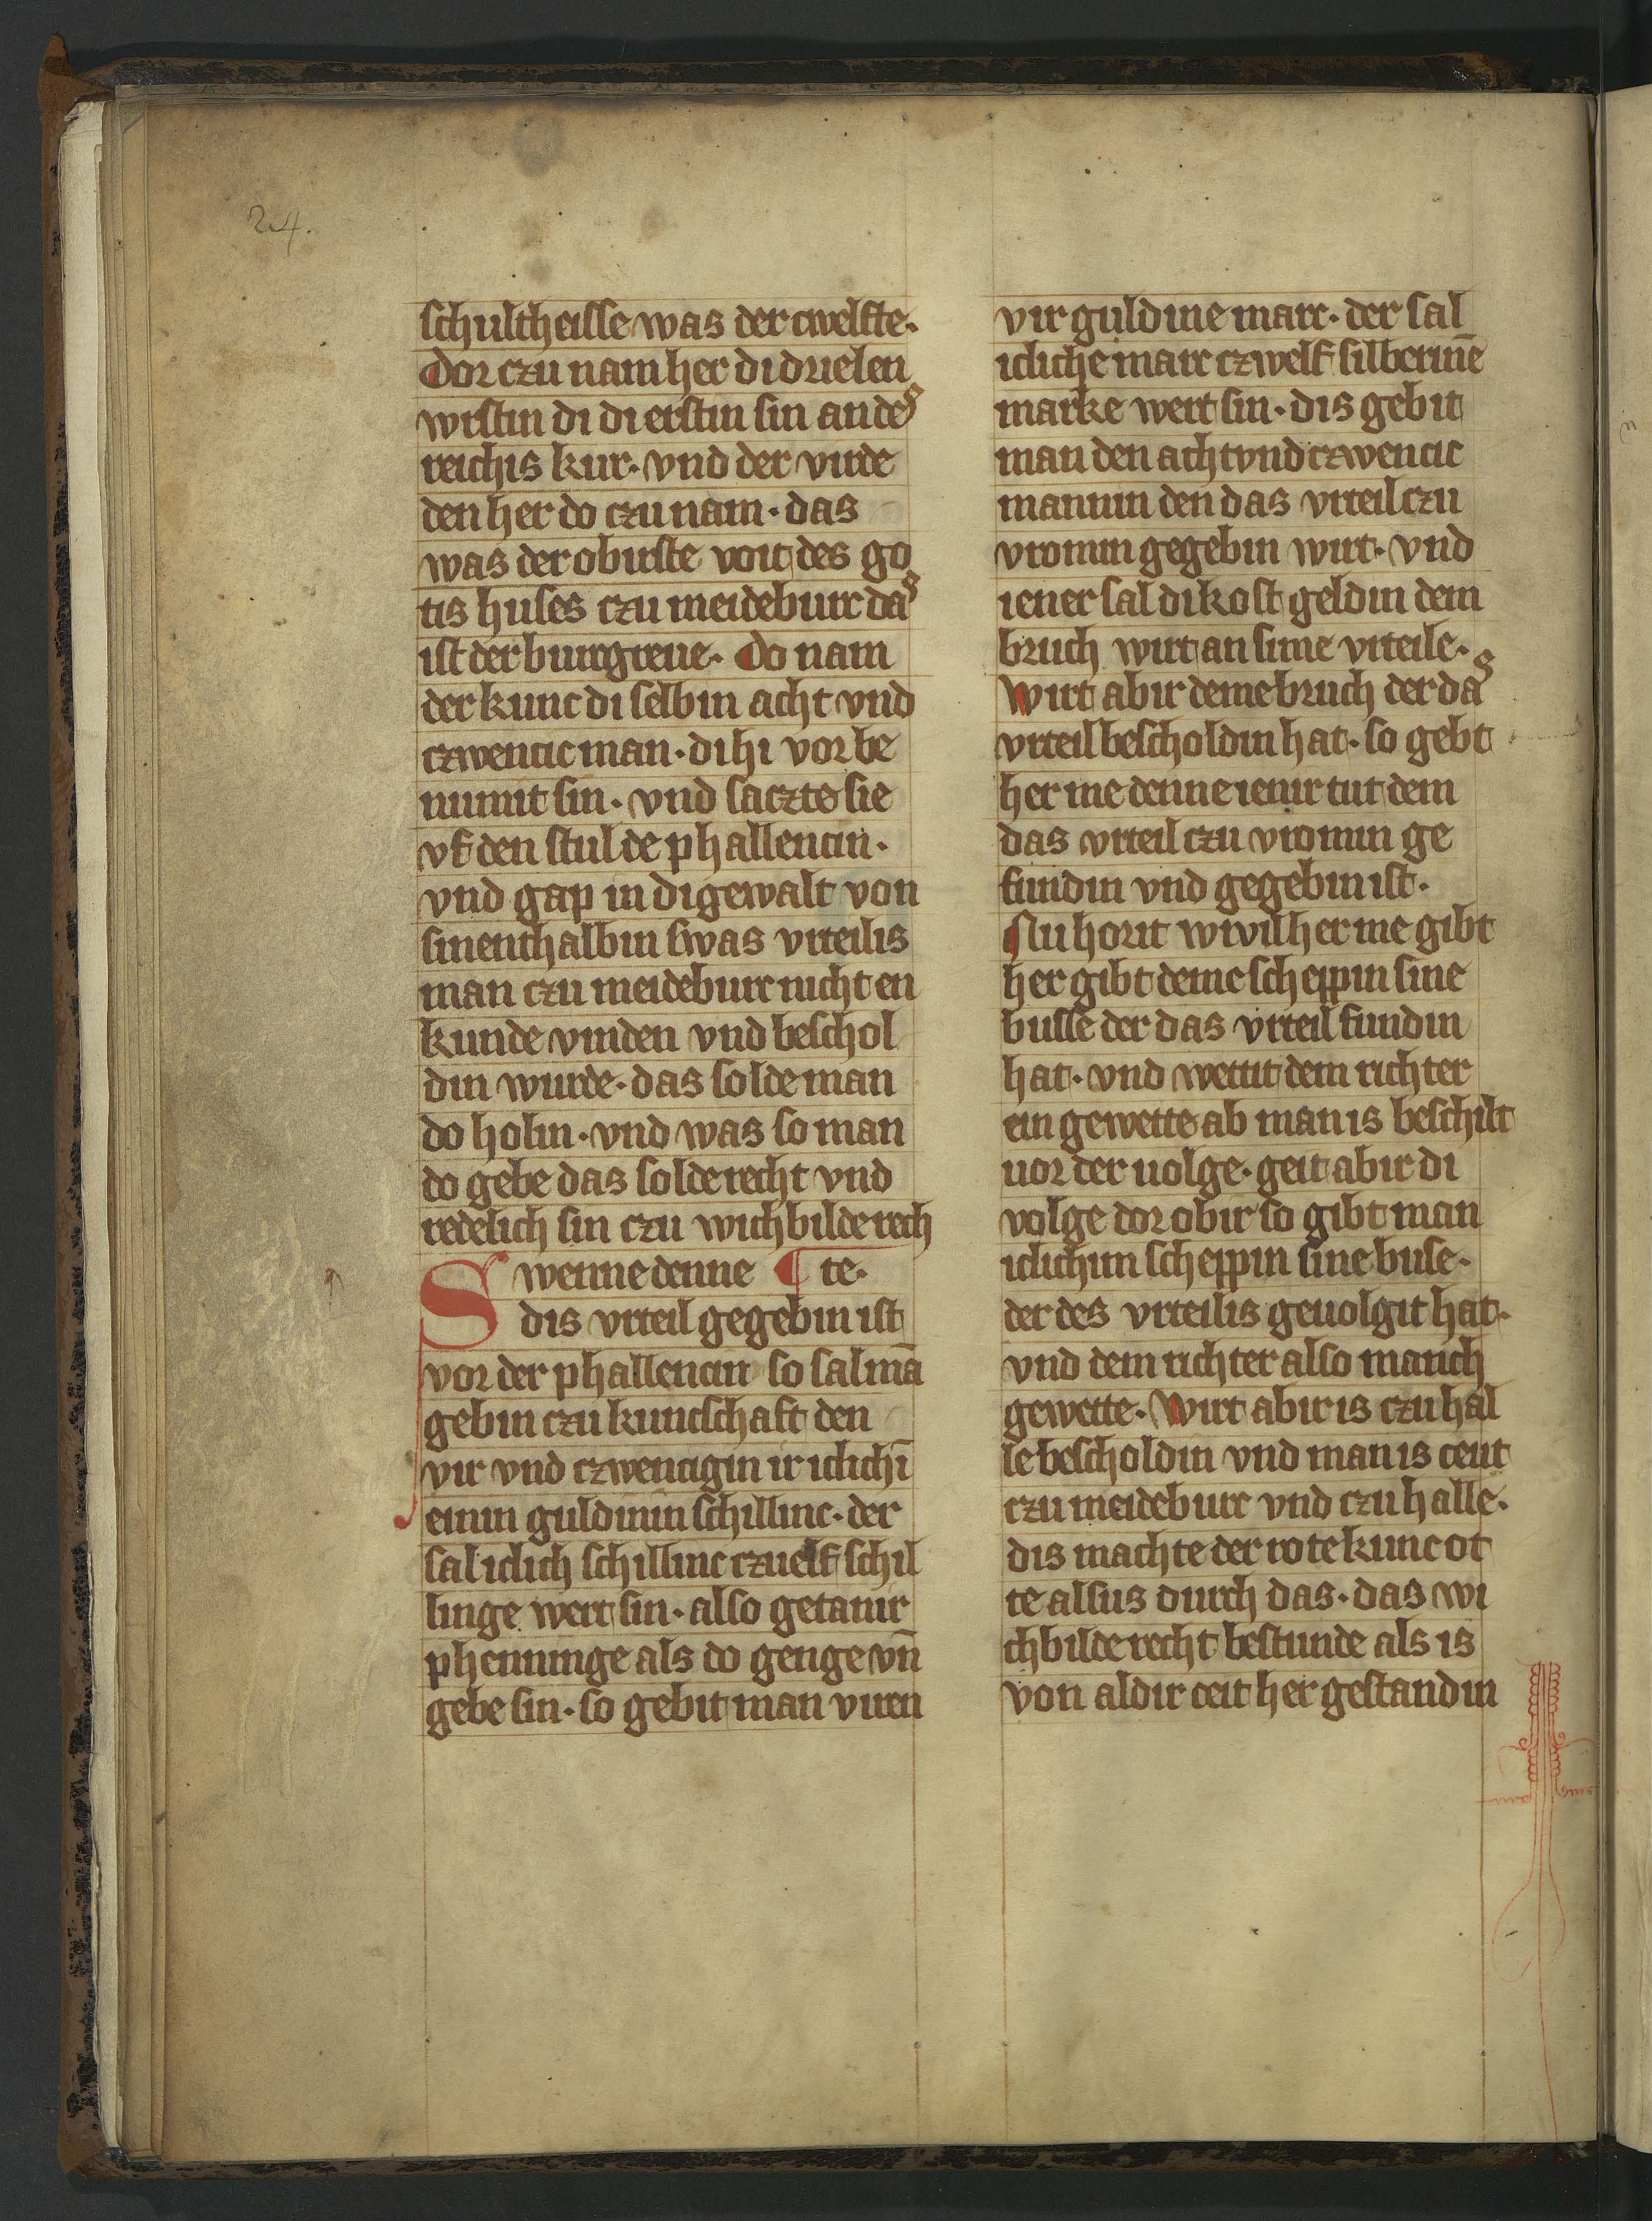 24.
schultheisse was der cwelfte·
Dor czu nam her di drie len
wrstin di di erstin sin an des
reichis kur· vnd der virde
den her do czu nam· das
was der obirste voit des go
tis huses czu meideburc das
ist der burcgreue· Do nam
der kunc di selbin acht vnd
czwencic man· di hi vor be
numit sin· vnd saczte sie
vf den stul de phallencin·
vnd gap in di gewalt von
sinenthalbin swas vrteilis
man czu meideburc nicht en
kunde vinden vnd beschol
din wurde· das solde man
do holin· vnd was so man
do gebe das solde recht vnd
redelich sin czu wichbilde rech
Swenne denne ¶ te·
dis vrteil gegebin ist
vor der phallencin so sal mā
gebin czu kuntschaft den
vir vnd czwencigin ir iclichī
einin guldinin schillinc· der
sal iclich schillinc czuelf schil
linge wert sin· also getanir
phenninge als do genge vn̄
gebe sin· so gebit man viren
vir guldine marc· der sal
icliche marc czwelf silberinē
marke wert sin· dis gebit
man den acht vnd czwencic
mannin den das vrteil czu
vromin gegebin wirt· vnd
iener sal di kost geldin dem
bruch wirt an sime vrteile·
Wirt abir deme bruch der das
vrteil bescholdin hat· so gebt
her me denne ienir tut dem
das vrteil czu vromin ge
fundin vnd gegebin ist·
Nu horit wi vil her me gibt
her gibt deme scheppin sine
busse der das vrteil fundin
hat· vnd wettit dem richter
ein gewette ab man is beschilt
uor der uolge· geit abir di
volge dor obir so gibt man
iclichim scheppin sine buse·
der des vrteilis geuolgit hat·
vnd dem richter also manch
gewette· Wirt abir is czu hal
le bescholdin vnd man is ceut
czu meideburc vnd czu halle·
dis machte der rote kunc ot
te alsus durch das· das wi
chbilde recht bestunde als is
von aldir ceit her gestandin